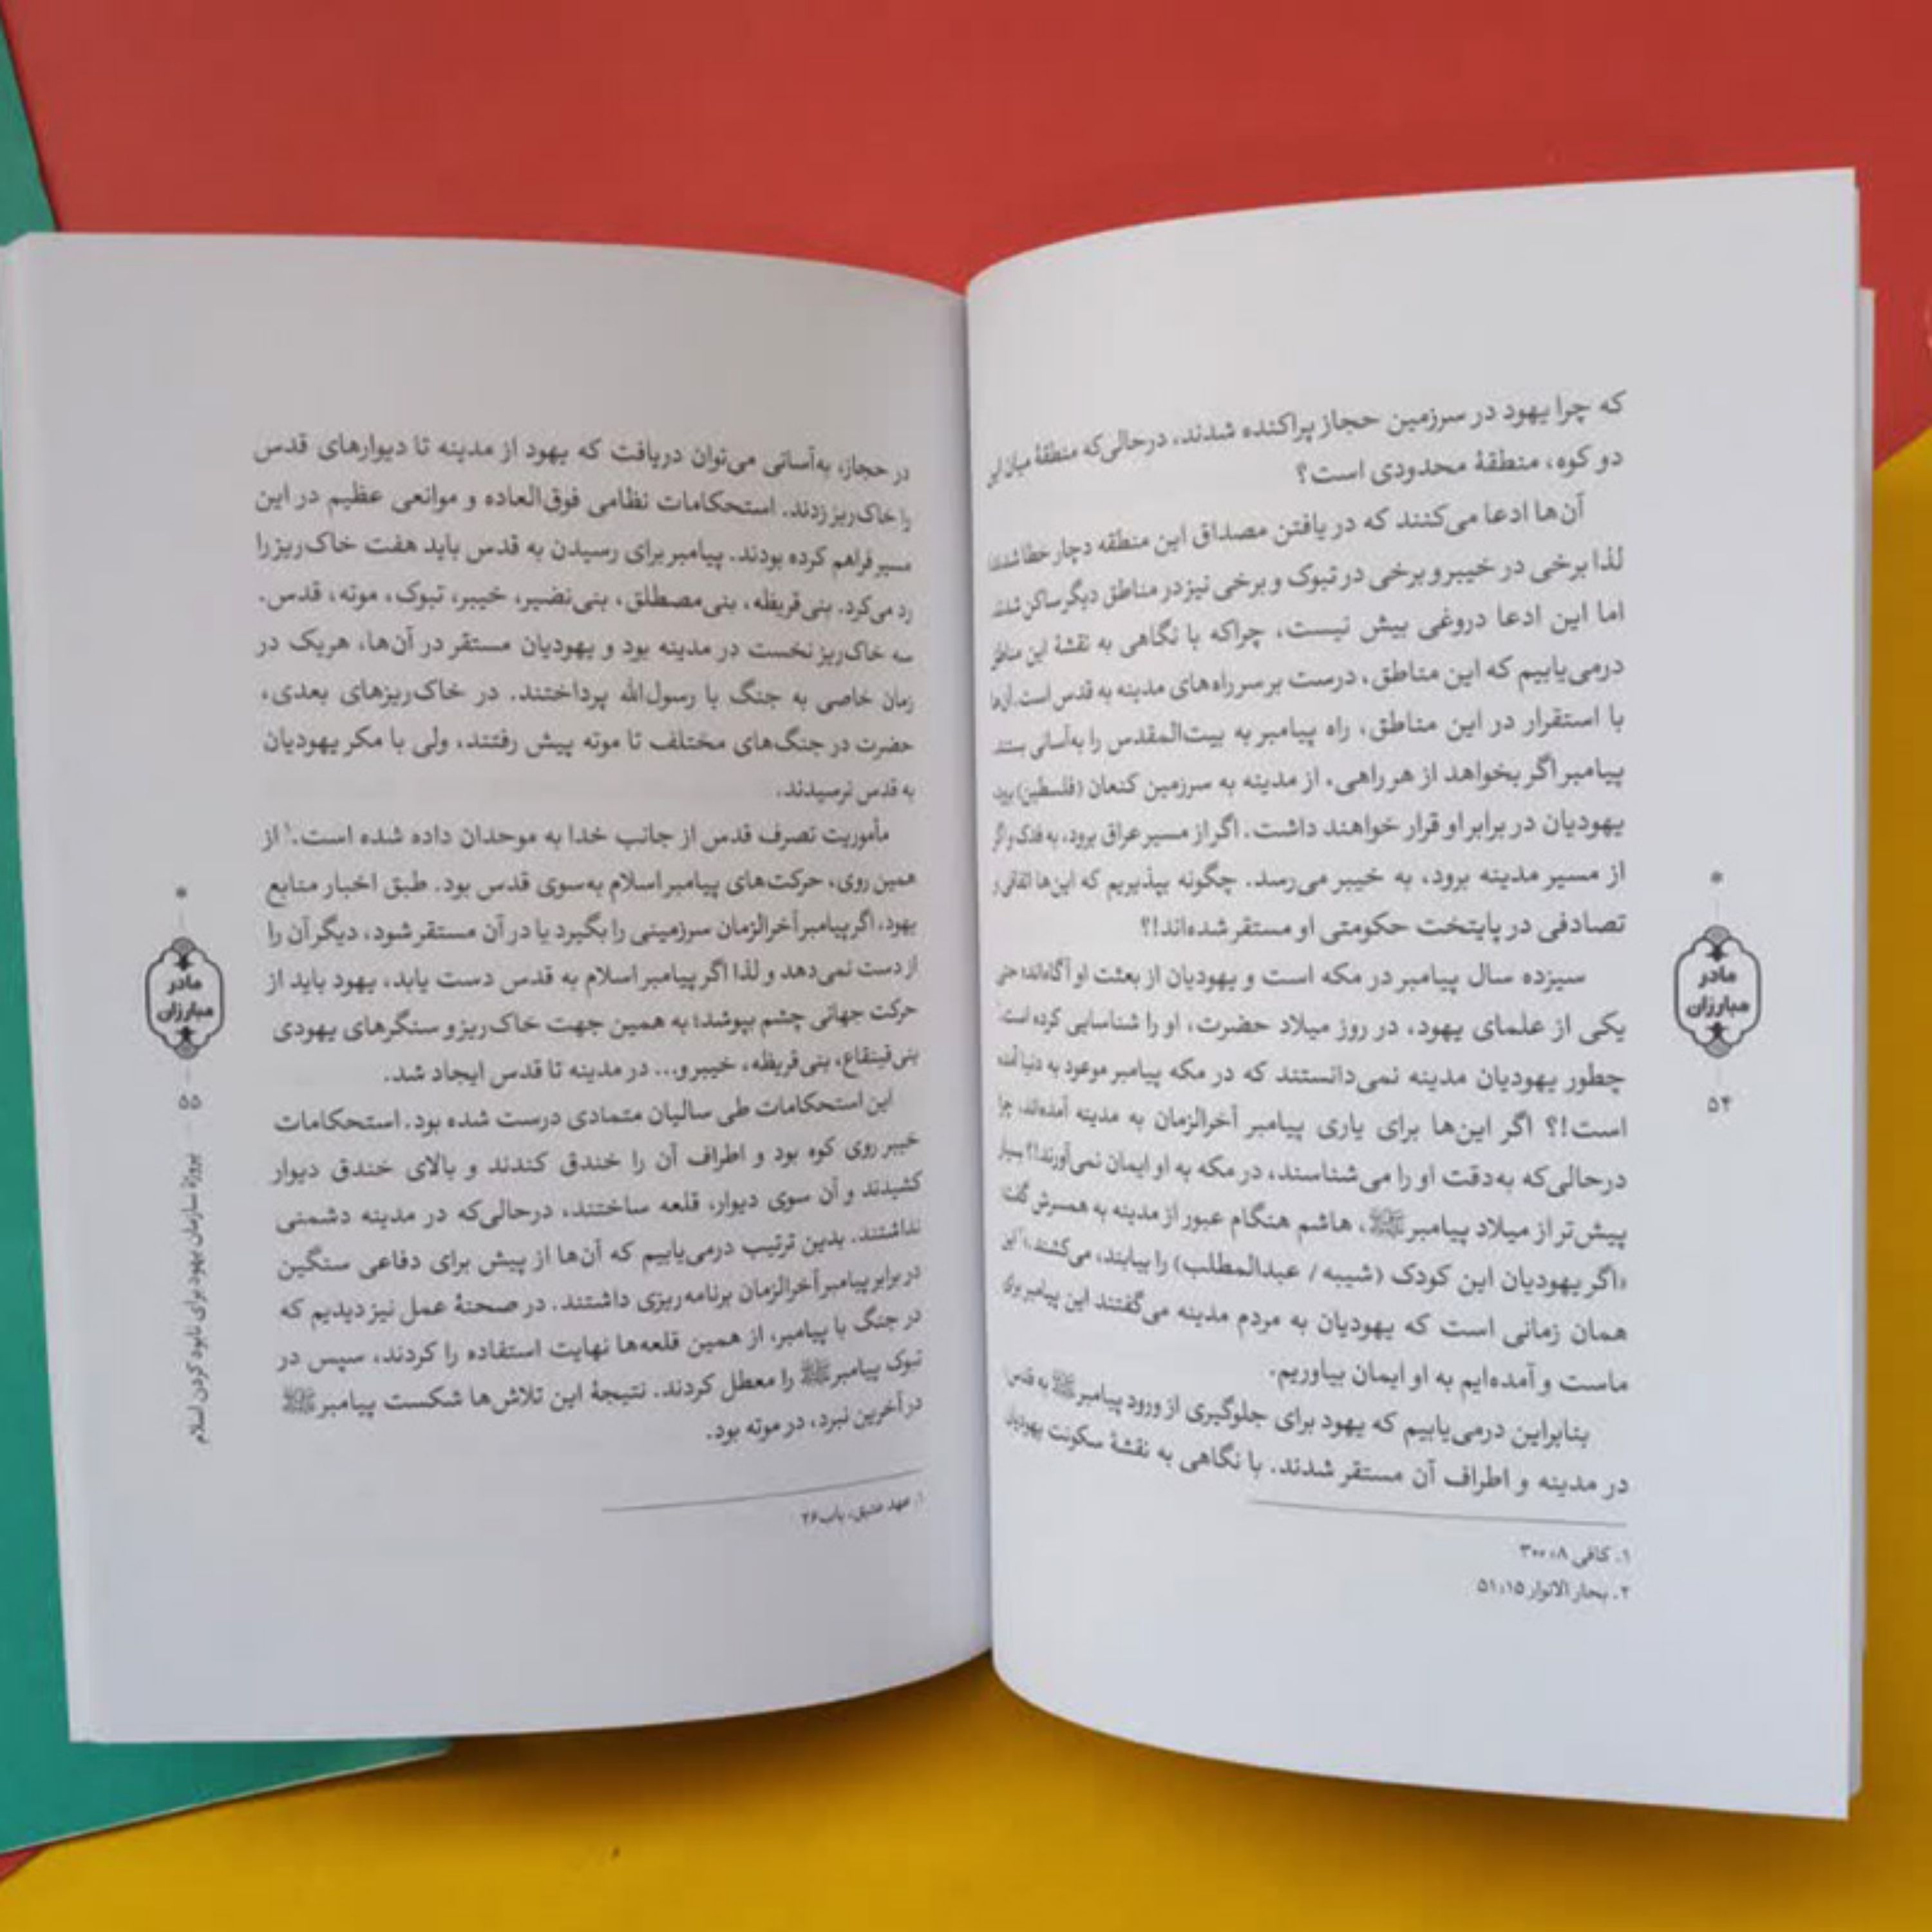 که چرا یهود در سرزمین حجاز پراکنده شدند، درحالی‌که منطقهٔ میان این
دو کوه، منطقهٔ محدودی است؟
آن‌ها ادعا می‌کنند که در یافتن مصداق این منطقه دچار خطا شدند؛
لذا برخی در خیبر و برخی در تبوک و برخی نیز در مناطق دیگر ساکن شدند.
اما این ادعا دروغی بیش نیست، چراکه با نگاهی به نقشهٔ این مناطق
درمی‌یابیم که این مناطق، درست بر سر راه‌های مدینه به قدس است. آن‌ها
با استقرار در این مناطق، راه پیامبر به بیت‌المقدس را به‌آسانی بستند.
پیامبر اگر بخواهد از هر راهی، از مدینه به سرزمین کنعان (فلسطین) برود،
یهودیان در برابر او قرار خواهند داشت. اگر از مسیر عراق برود، به فدک و اگر
از مسیر مدینه برود، به خیبر می‌رسد. چگونه بپذیریم که این‌ها اتفاقی و
تصادفی در پایتخت حکومتی او مستقر شده‌اند!؟
سیزده سال پیامبر در مکه است و یهودیان از بعثت او آگاه‌اند؛ حتی
یکی از علمای یهود، در روز میلاد حضرت، او را شناسایی کرده است.
چطور یهودیان مدینه نمی‌دانستند که در مکه پیامبر موعود به دنیا آمده
است!؟ اگر این‌ها برای یاری پیامبر آخرالزمان به مدینه آمده‌اند، چرا
درحالی‌که به‌دقت او را می‌شناسند، در مکه به او ایمان نمی‌آورند!؟ بسیار
پیش‌تر از میلاد پیامبر ﷺ، هاشم هنگام عبور از مدینه به همسرش گفت:
«اگر یهودیان این کودک (شیبه / عبدالمطلب) را بیابند، می‌کشند.» این
همان زمانی است که یهودیان به مردم مدینه می‌گفتند این پیامبر برای
ماست و آمده‌ایم به او ایمان بیاوریم.
بنابراین درمی‌یابیم که یهود برای جلوگیری از ورود پیامبر ﷺ به قدس،
در مدینه و اطراف آن مستقر شدند. با نگاهی به نقشهٔ سکونت یهودیان
۱. کافی ۸: ۳۰۰
۲. بحار الانوار ۱۵: ۵۱
مادر
مبارزان
۵۴
در حجاز، به‌آسانی می‌توان دریافت که یهود از مدینه تا دیوارهای قدس
را خاک‌ریز زدند. استحکامات نظامی فوق‌العاده و موانعی عظیم در این
مسیر فراهم کرده بودند. پیامبر برای رسیدن به قدس باید هفت خاک‌ریز را
رد می‌کرد. بنی‌قریظه، بنی‌مصطلق، بنی‌نضیر، خیبر، تبوک، موته، قدس.
سه خاک‌ریز نخست در مدینه بود و یهودیان مستقر در آن‌ها، هریک در
زمان خاصی به جنگ با رسول‌الله پرداختند. در خاک‌ریزهای بعدی،
حضرت در جنگ‌های مختلف تا موته پیش رفتند، ولی با مکر یهودیان
به قدس نرسیدند.
مأموریت تصرف قدس از جانب خدا به موحدان داده شده است.۱ از
همین روی، حرکت‌های پیامبر اسلام به‌سوی قدس بود. طبق اخبار منابع
یهود، اگر پیامبر آخرالزمان سرزمینی را بگیرد یا در آن مستقر شود، دیگر آن را
از دست نمی‌دهد و لذا اگر پیامبر اسلام به قدس دست یابد، یهود باید از
حرکت جهانی چشم بپوشد؛ به همین جهت خاک‌ریز و سنگرهای یهودی
بنی‌قینقاع، بنی‌قریظه، خیبر و... در مدینه تا قدس ایجاد شد.
این استحکامات طی سالیان متمادی درست شده بود. استحکامات
خیبر روی کوه بود و اطراف آن را خندق کندند و بالای خندق دیوار
کشیدند و آن سوی دیوار، قلعه ساختند، درحالی‌که در مدینه دشمنی
نداشتند. بدین ترتیب درمی‌یابیم که آن‌ها از پیش برای دفاعی سنگین
در برابر پیامبر آخرالزمان برنامه‌ریزی داشتند. در صحنهٔ عمل نیز دیدیم که
در جنگ با پیامبر، از همین قلعه‌ها نهایت استفاده را کردند، سپس در
تبوک پیامبر ﷺ را معطل کردند. نتیجهٔ این تلاش‌ها شکست پیامبر ﷺ
در آخرین نبرد، در موته بود.
۱. عهد عتیق، باب ۲۶
مادر
مبارزان
۵۵
پروژهٔ سازمان یهود برای نابود کردن اسلام